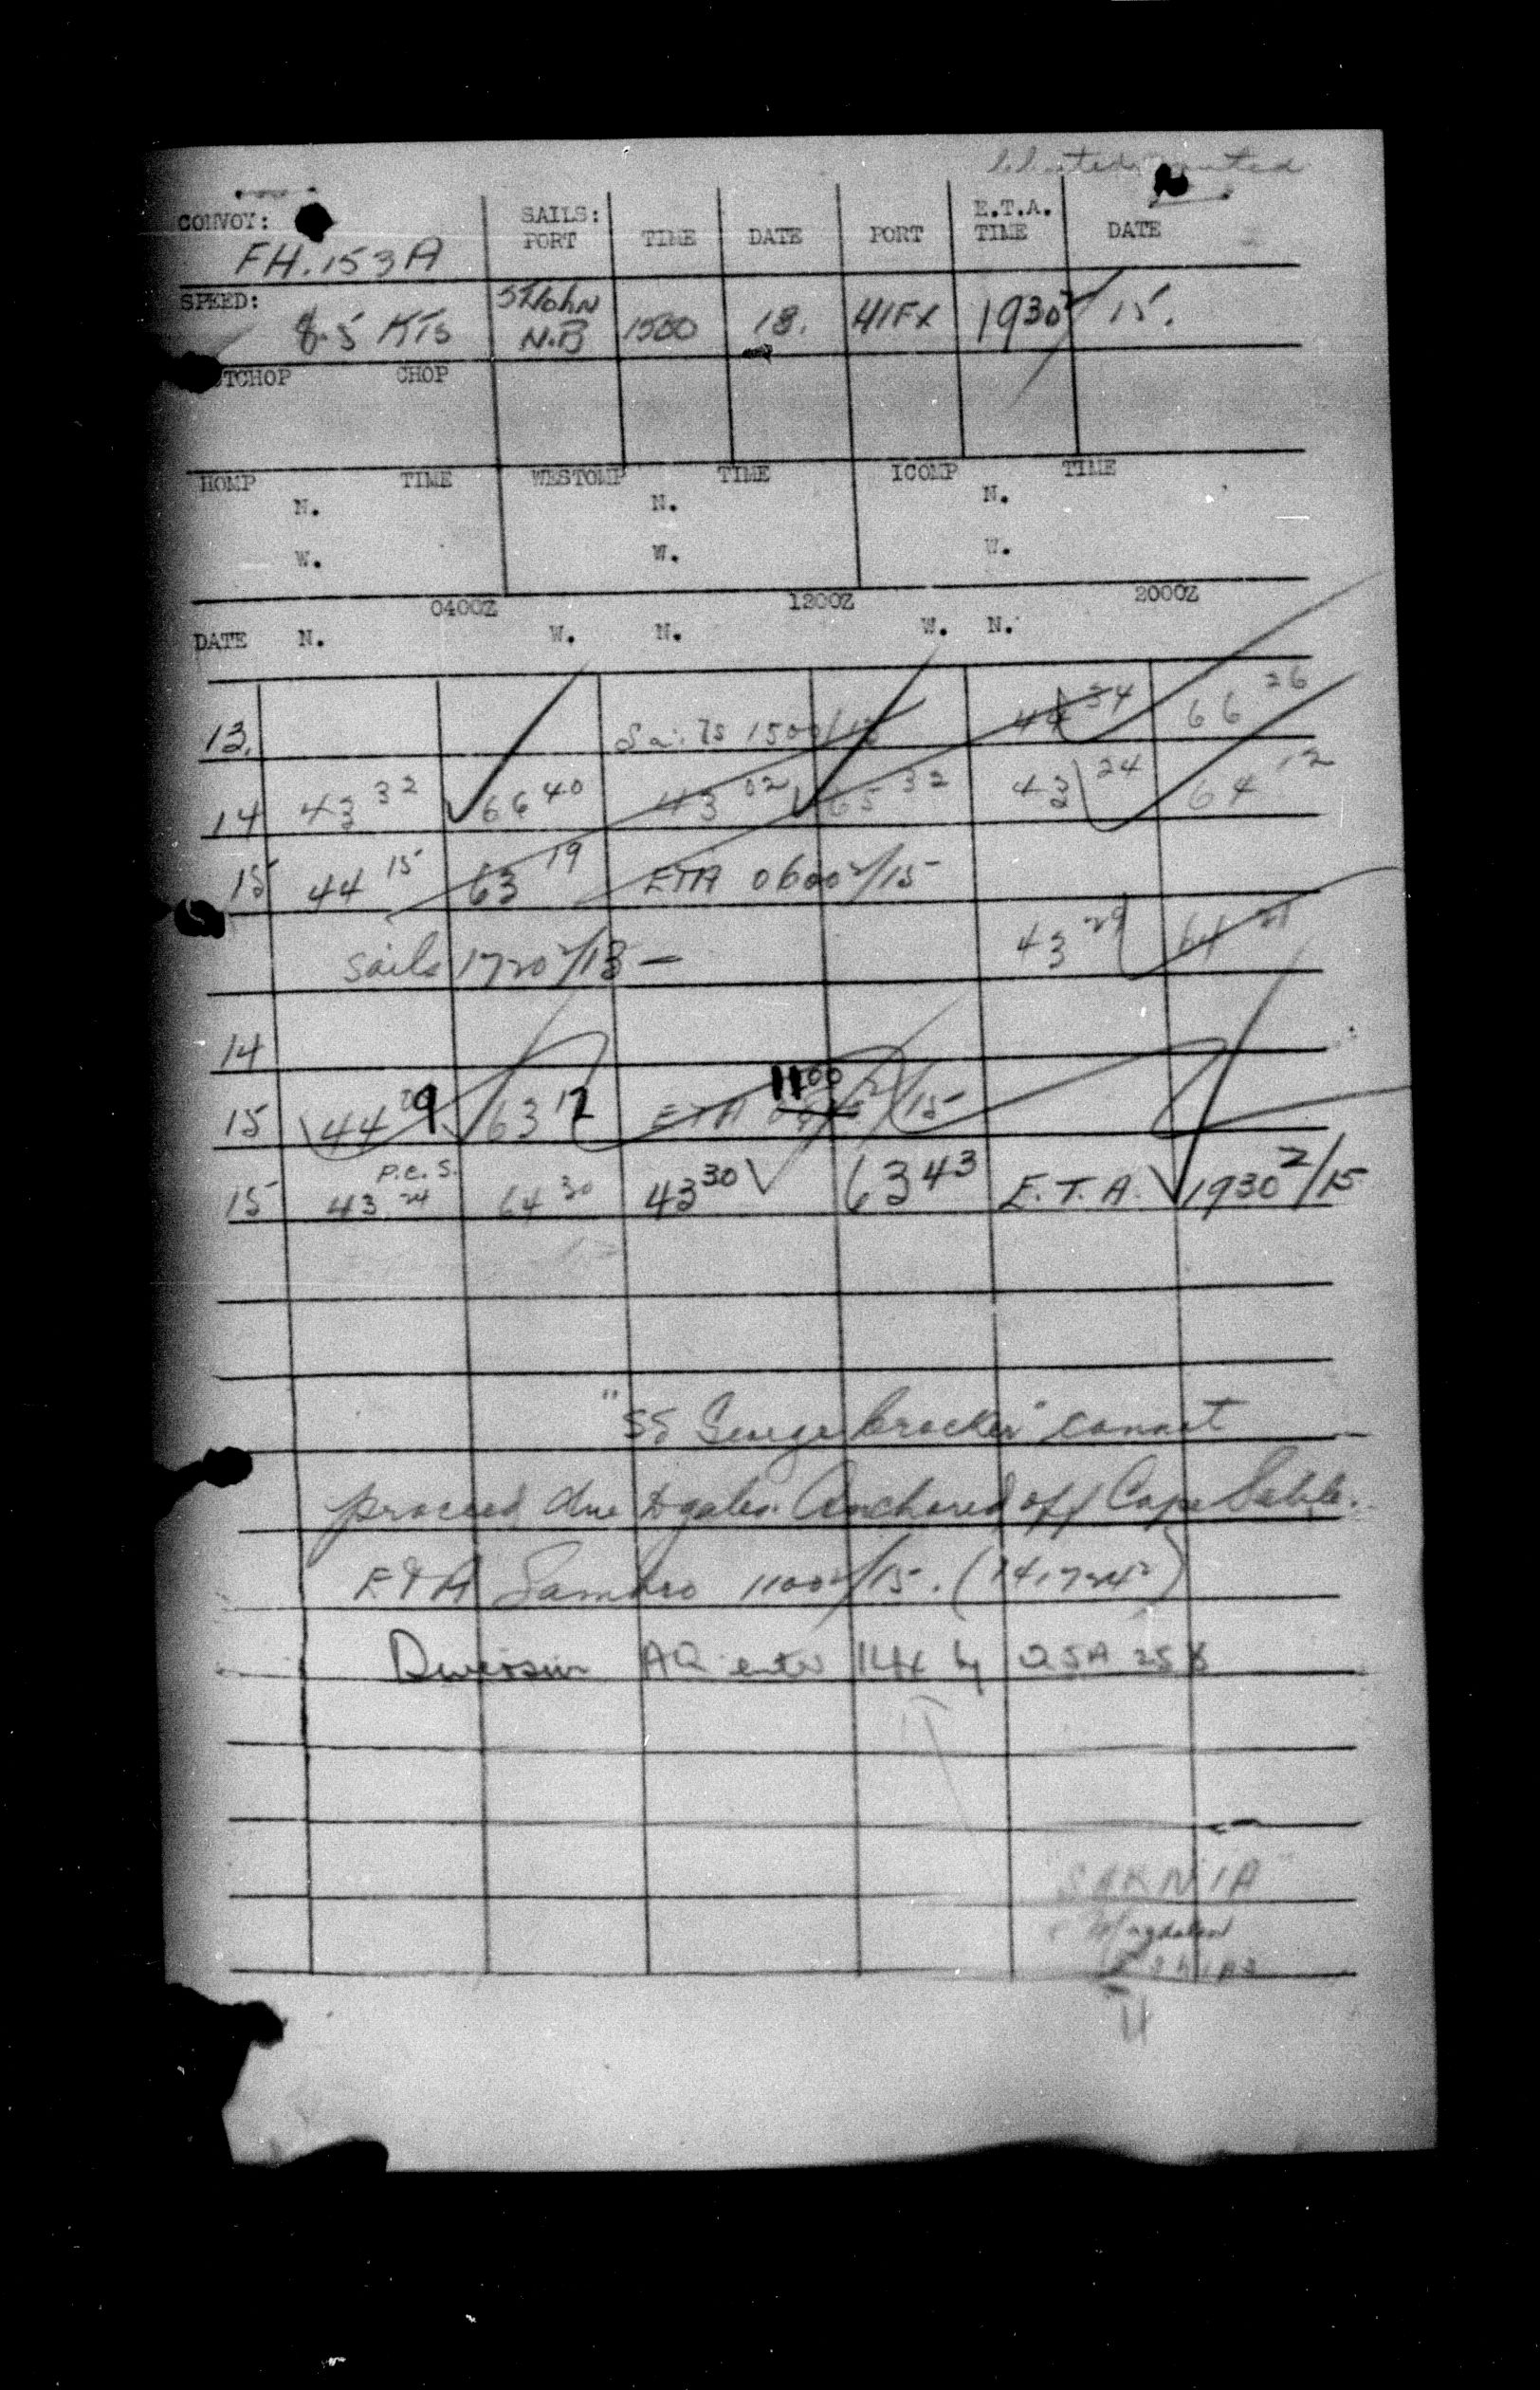 CONVOY: SAILS: PORT TIME DATE PORT E.T.A. TIME DATE
FH.153A
SPEED: 8.5 KTS St John N.B 1500 13. HIFX 1930Z/15.
CHOP
HOMP TIME WESTOMP TIME ICOMP TIME
N. N. N.
W. W. W.
0400Z 1200Z 2000Z
DATE N. W. N. W. N.
13. Sails 1500/13 44 34 66 26
14 43 32 66 40 43 02 65 32 43 24 64 12
15 44 15 63 19 ETA 0600Z/15
Sails 1720Z/13 — 43 29 64 21
14
1100
15 44 09 63 12 ETA /15
P.C.S.
15 43 24 64 30 43 30 63 43 E.T.A. 1930Z/15
"SS George Crocker" cannot
proceed due to gales. Anchored off Cape Sable.
ETA Sambro 1100Z/15. (141724Z)
Diversion AQ by
"SARNIA"
Magdalen
11